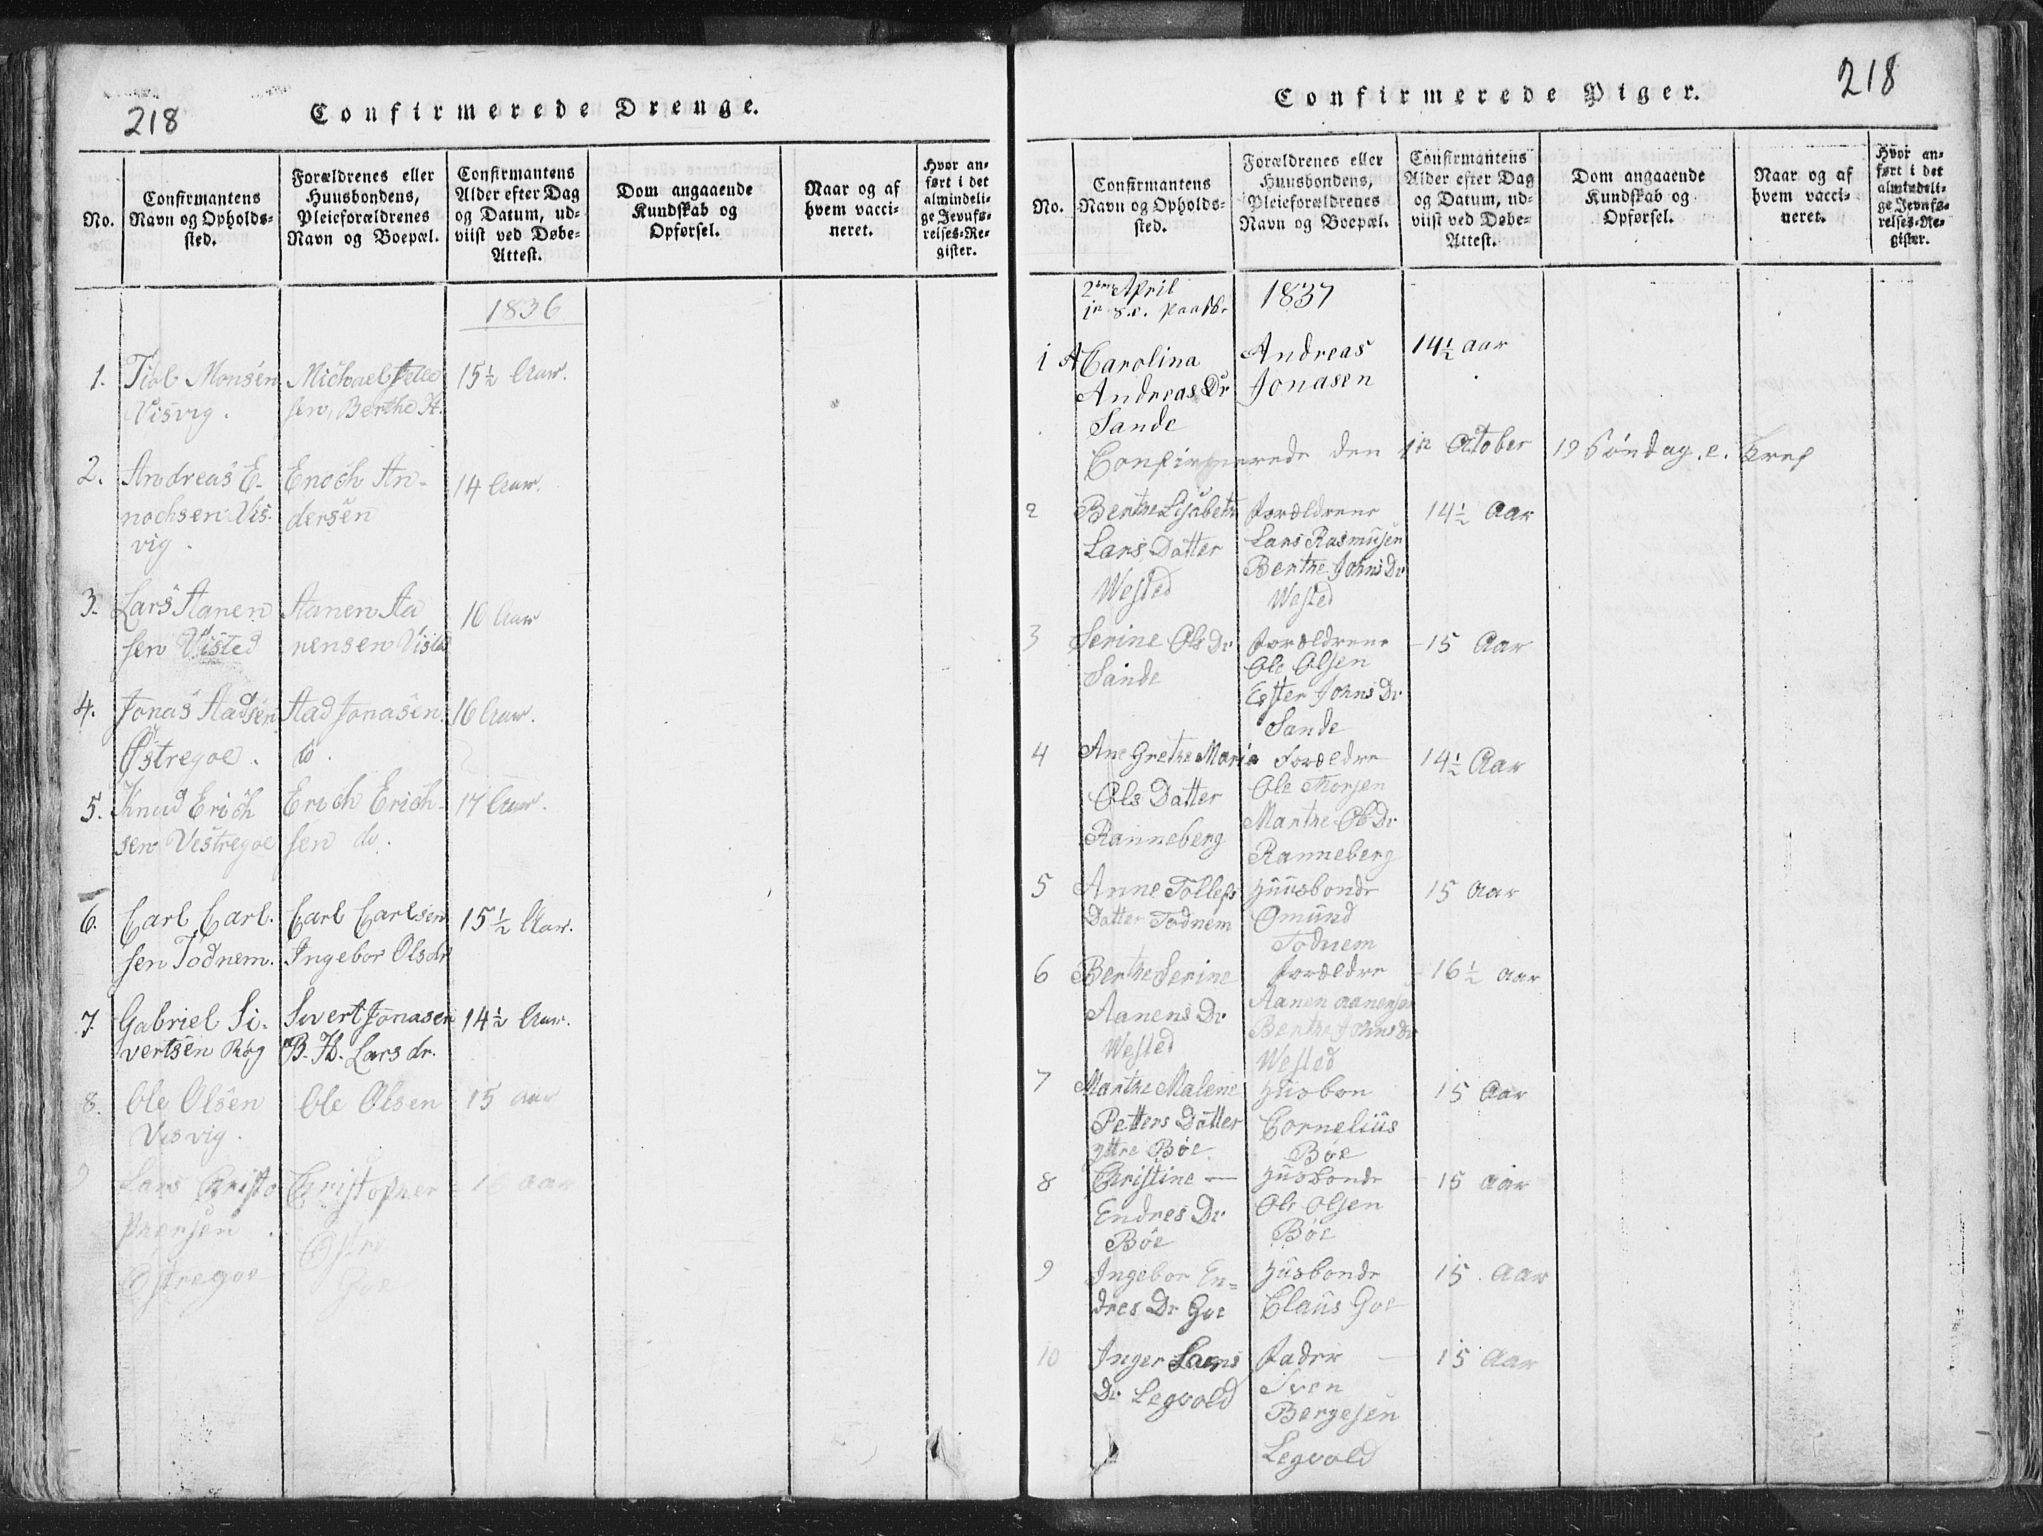 218
Confirmerede Drenge.
No.
Confirmantens
Navn og Opholds-
sted.
Forældrenes eller
Huusbondens,
Pleieforældrenes
Navn og Boepæl.
Confirmantens
Alder efter Dag
og Datum, ud-
viist ved Døbe-
Attest.
Dom angaaende
Kundskab og
Opførsel.
Naar og af
hvem vacci-
neret.
Hvor an-
ført i det
almindeli-
ge Jevnfø-
relses-Re-
gister.
1836
1. Tiol Monsen Michael 15½ Aar.
Visvig. sen, Berthe H.
2. Andreas E- Enoch An- 14 Aar.
nochsen Vis- dersen
vig.
3. Lars Aanen Aanen Aa 16 Aar
sen Visted nensen Visted
4. Jonas Aadsen Aad Jonasen 16 Aar.
Østregoe. do.
5. Knud Erich Erich Erich- 17 Aar.
sen Vestregoe sen do.
6. Carl Carl- Carl Carlsen 15½ Aar.
sen Todnem. Ingebor Olsdr
7. Gabriel Si- Sivert Jonasen 14½ Aar.
vertsen Røg B. H. Lars dr.
8. Ole Olsen Ole Olsen 15 aar
Visvig.
9 Lars Christo Christopher 16 aar
phersen Østre
Østregoe Goe
218
Confirmerede Piger.
No.
Confirmantens
Navn og Opholds-
sted.
Forældrenes eller
Huusbondens,
Pleieforældrenes
Navn og Boepæl.
Confirmantens
Alder efter Dag
og Datum, ud-
viist ved Døbe-
Attest.
Dom angaaende
Kundskab og
Opførsel.
Naar og af
hvem vacci-
neret.
Hvor an-
ført i det
almindeli-
ge Jevnfø-
relses-Re-
gister.
2den April 1837
1n S. e. paaske
1 Carolina Andreas 14½ aar
Andreas Dr Jonasen
Sande
Confirmerede den 1n October 19 Söndag. e. Tref
2 Berthe Lisabeth Forældrene 14½ Aar
Lars Datter Lars Rasmusen
Wested Berthe Johns Dr
Wested
3 Serine Ols Dr Forældrene 15 Aar
Sande Ole Olsen
Ester Johns Dr
Sande
4 Ane Grethe Maria Forældre 14½ Aar
Ols Datter Ole Thorsen
Ranneberg Marthe Ols Dr
Ranneberg
5 Anne Tollefs Huusbonde 15 Aar
Datter Todnem Omund
Todnem
6 Berthe Serine Forældre 16½ aar
Aanens Dr Aanen Aanensen
Wested Berthe Johns Dr
Wested
7 Marthe Malene Husbon 15 Aar
Petters Datter Cornelius
Yttre Böe. Böe
8 Christine — Husbonde 15 Aar
Endres Dr Ole Olsen
Böe Böe
9 Ingebor En= Husbonde 15. Aar
dres Dr Goe Claus Goe
10 Inger Lars Fader 15 Aar
Dr Legvold Sven
Bergesen
Legvold